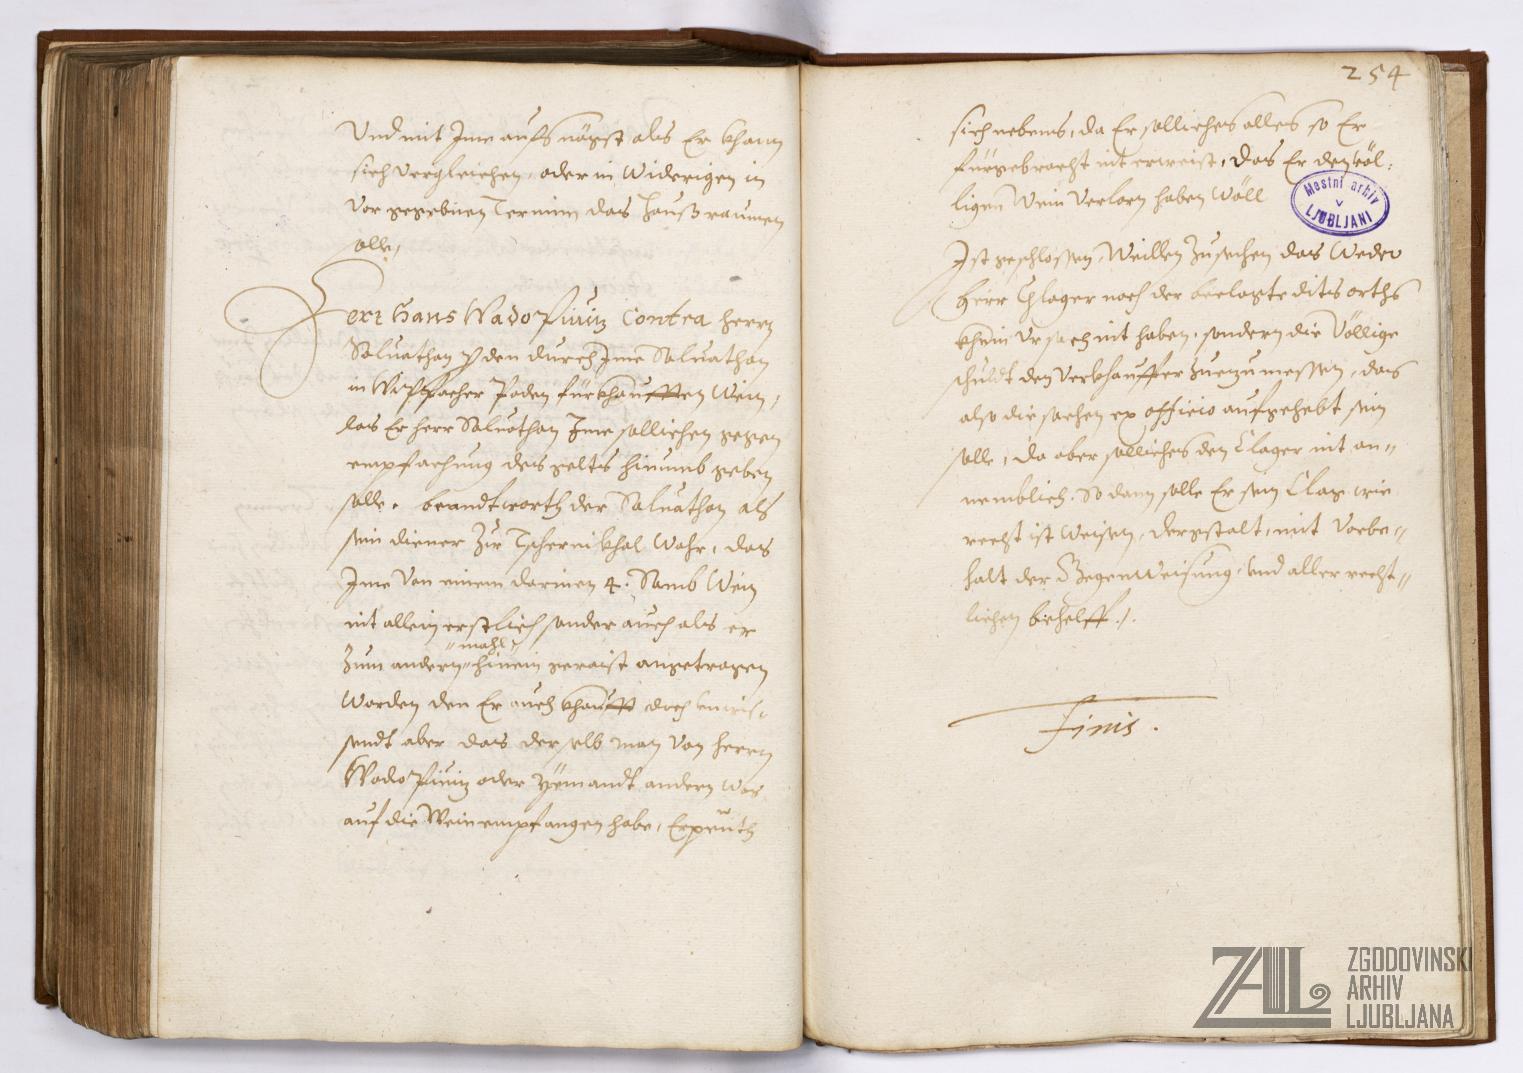 Und mit Ime aufs nägst als Er khann
sich vergleichen, oder in widerigen in
vor gegebnen Termin das Hauß raumen
solle,
Herr Hans Wadopiuiz Contra herrn
Saluathon per den durch Ime Saluathon
in Wippacher Poden fürkhaufften Wein,
das Er herr Saluathon Ime sollichen gegen
empfachung des gelts hinumb geben
solle. beandtworth der Saluathon als
sein diener zur Tschernikhal wahr, das
Ime von einem darinen 4. Samb Wein
nit allein erstlich sonder auch als er
zum andern mahl hinein geraist angetragen
worden den Er auch khaufft doch unwis-
sendt aber das derselb man von herrn
Wadopiuiz oder yemandt andern was
auf die Wein empfangen habe, Erpeuth
254
sich nebens, da Er solliches alles so Er
fürgebracht nit erweist, das Er den völ:
ligen Wein verlorn haben wöll
Ist geschlossen, Weillen zusechen das weder
herr Clager noch der beclagte dits orths
khein ursach nit haben, sondern die völlige
schuldt den verkhauffer zuezumessen, das
also die sachen ex officio aufgehebt sein
solle, da aber solliches den Clager nit an-
nemblich. So dann solle Er sein Clag wie
recht ist weisen, dergestalt, mit vorbe-
halt der Gegenweisung und aller recht-
lichen behelff.
Finis.
Mestni arhiv
v
LJUBLJANI
ZAL
ZGODOVINSKI
ARHIV
LJUBLJANA